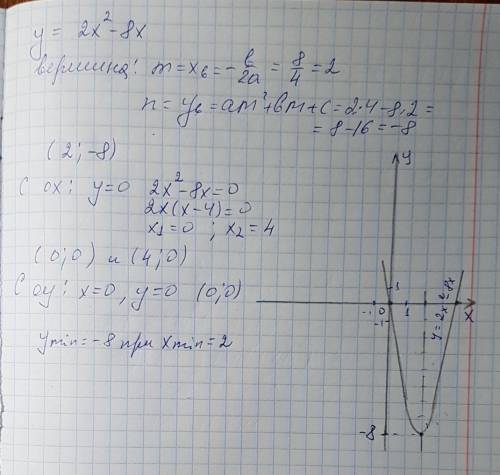 y = 2x² - 8x
вершина: m = x₆ = - b/2a = 8/4 = 2
n = y₆ = am² + bm + c = 2·4 - 8·2 =
= 8 - 16 = -8
(2; -8)
С ox: y=0 2x² - 8x = 0
2x(x-4) = 0
x₁ = 0 ; x₂ = 4
(0;0) и (4;0)
С oy: x=0, y=0 (0;0)
y min = -8 при x min = 2
y
1
0
1
x
y = 2x² - 8x
-8